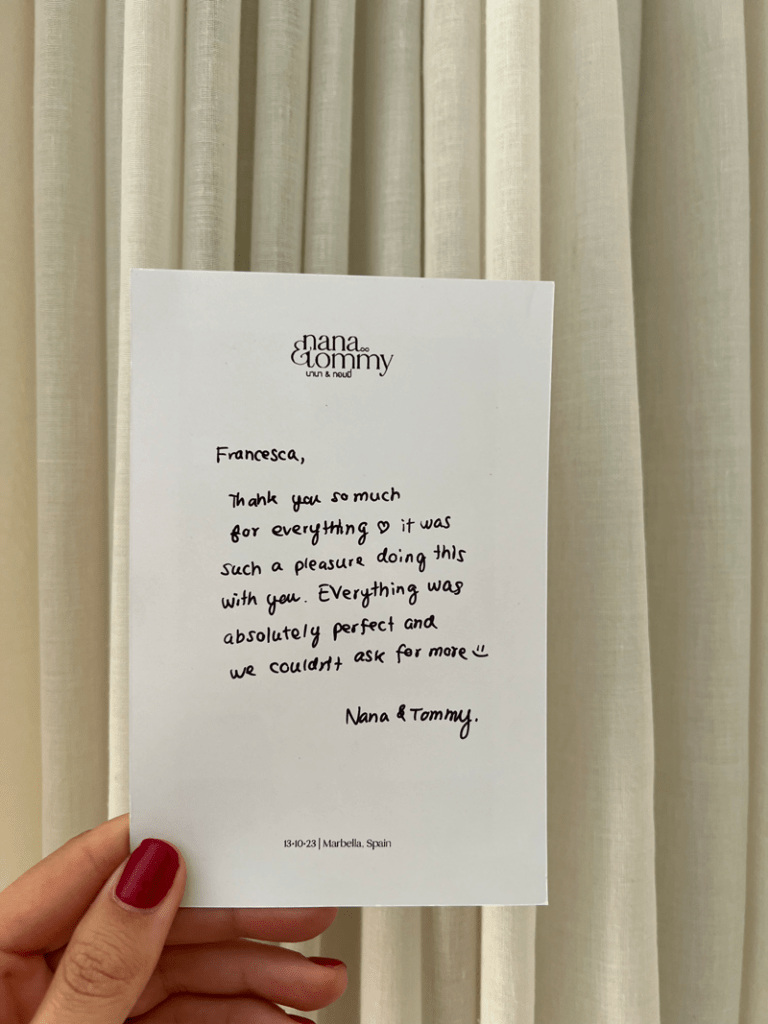 nana
&tommy
นานา & ทอมมี่
Francesca,
Thank you so much
for everything ♡ it was
such a pleasure doing this
with you. Everything was
absolutely perfect and
we couldn't ask for more
Nana & Tommy.
13•10•23 | Marbella, Spain